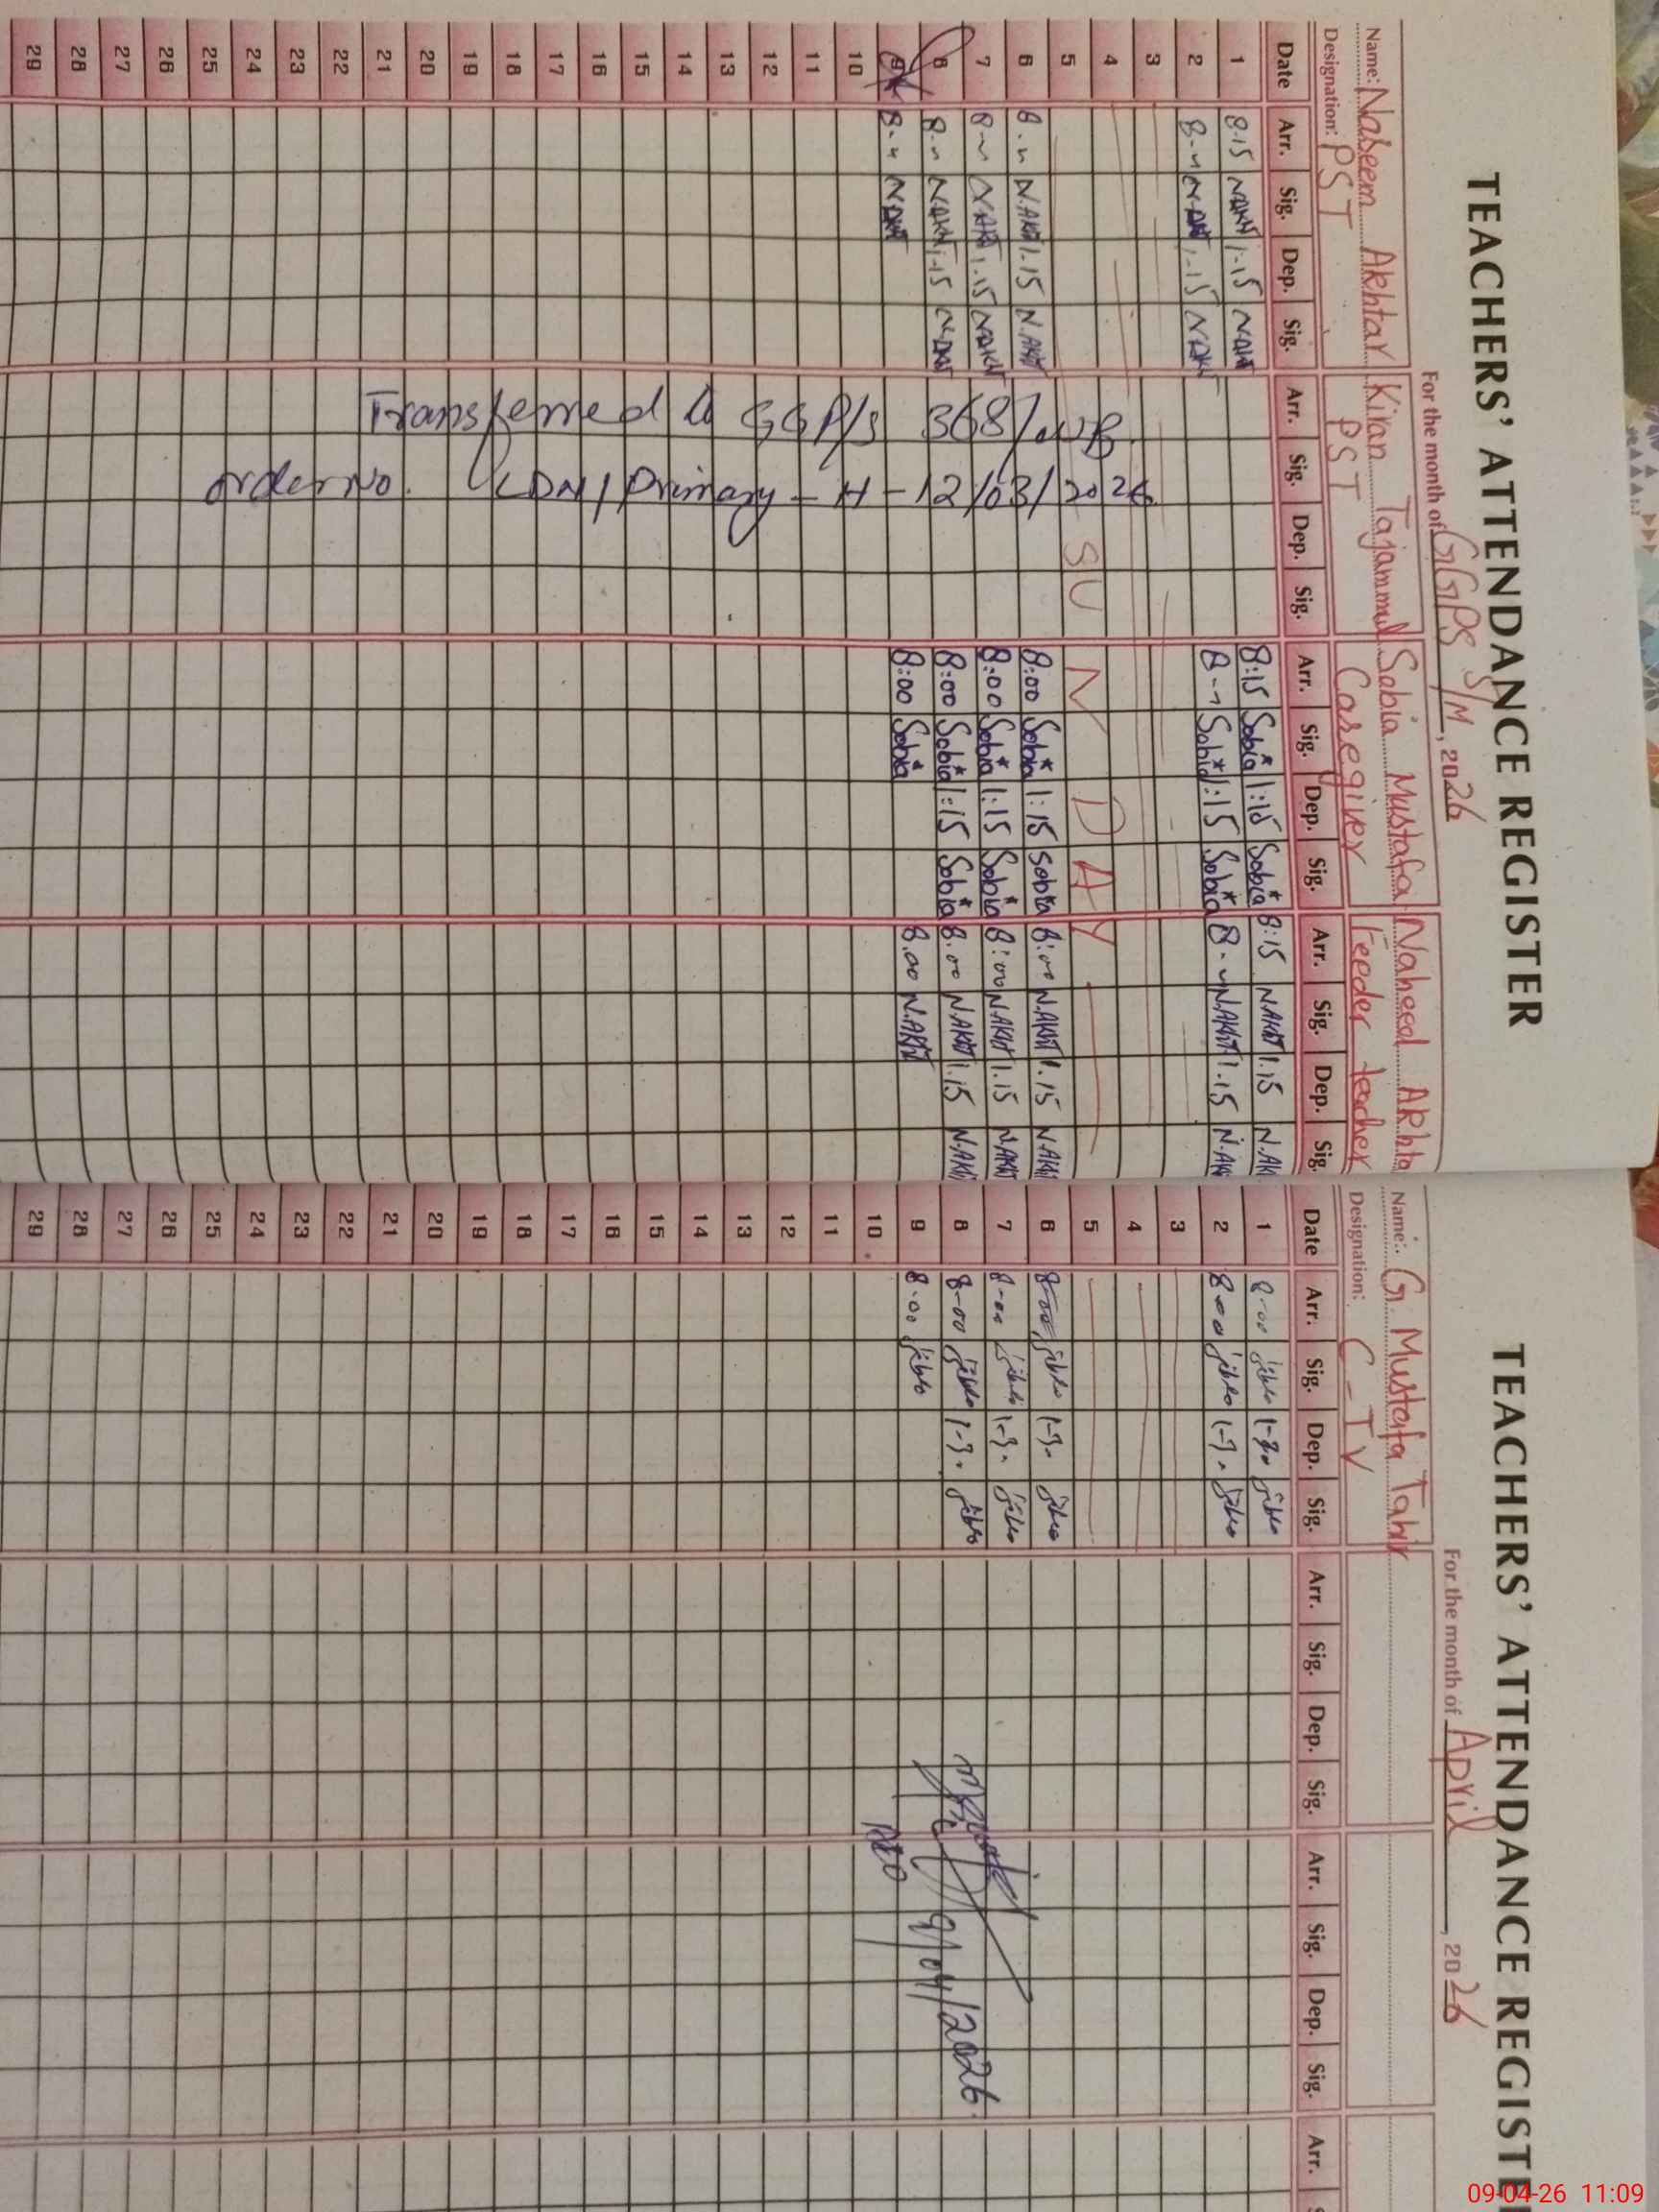 TEACHERS' ATTENDANCE REGISTER
For the month of GGPS S/M, 2026
Name: Nabeem Akhtar Kiran Tajammul Sobia Mustafa Naheed Akhta
Designation: PST PST Caregiver Feeder teacher
Date Arr. Sig. Dep. Sig. Arr. Sig. Dep. Sig. Arr. Sig. Dep. Sig. Arr. Sig. Dep. Sig.
1 8.15 NAKHT 1-15 NAKHT 8:15 Sobia 1:15 Sobia 8:15 N.AKHT 1.15 N.AK
2 8- NAKHT 1-15 NAKHT 8- Sobia 1:15 Sobia 8- N.AKHT 1.15 N.AK
3
4
5 SUNDAY
6 8- N.AKHT 1.15 N.AKHT 8:00 Sobia 1:15 Sobia 8:00 N.AKHT 1.15 N.AKHT
7 8- NAKHT 1.15 NAKHT 8:00 Sobia 1:15 Sobia 8:00 N.AKHT 1.15 N.AKHT
8 8- NAKHT 1-15 NAKHT 8:00 Sobia 1:15 Sobia 8.00 N.AKHT 1.15 N.AKHT
9 8- NAKHT 8:00 Sobia 8.00 N.AKHT
10
11
12
13
14
15
16
17
18
19
20
21
22
23
24
25
26
27
28
29
Transferred to GGP/S 368/WB
order No. LDN/Primary-H-12/03/2026
TEACHERS' ATTENDANCE REGISTE
For the month of April, 2026
Name: G. Mustafa Tahir
Designation: C-IV
Date Arr. Sig. Dep. Sig. Arr. Sig. Dep. Sig. Arr. Sig. Dep. Sig. Arr.
1 8-00 1-30
2 8-00 1-30
3
4
5
6 8-00 1-30
7 8-00 1-30
8 8-00 1-30
9 8.00
10
11
12
13
14
15
16
17
18
19
20
21
22
23
24
25
26
27
28
29
9/04/2026
09-04-26 11:09